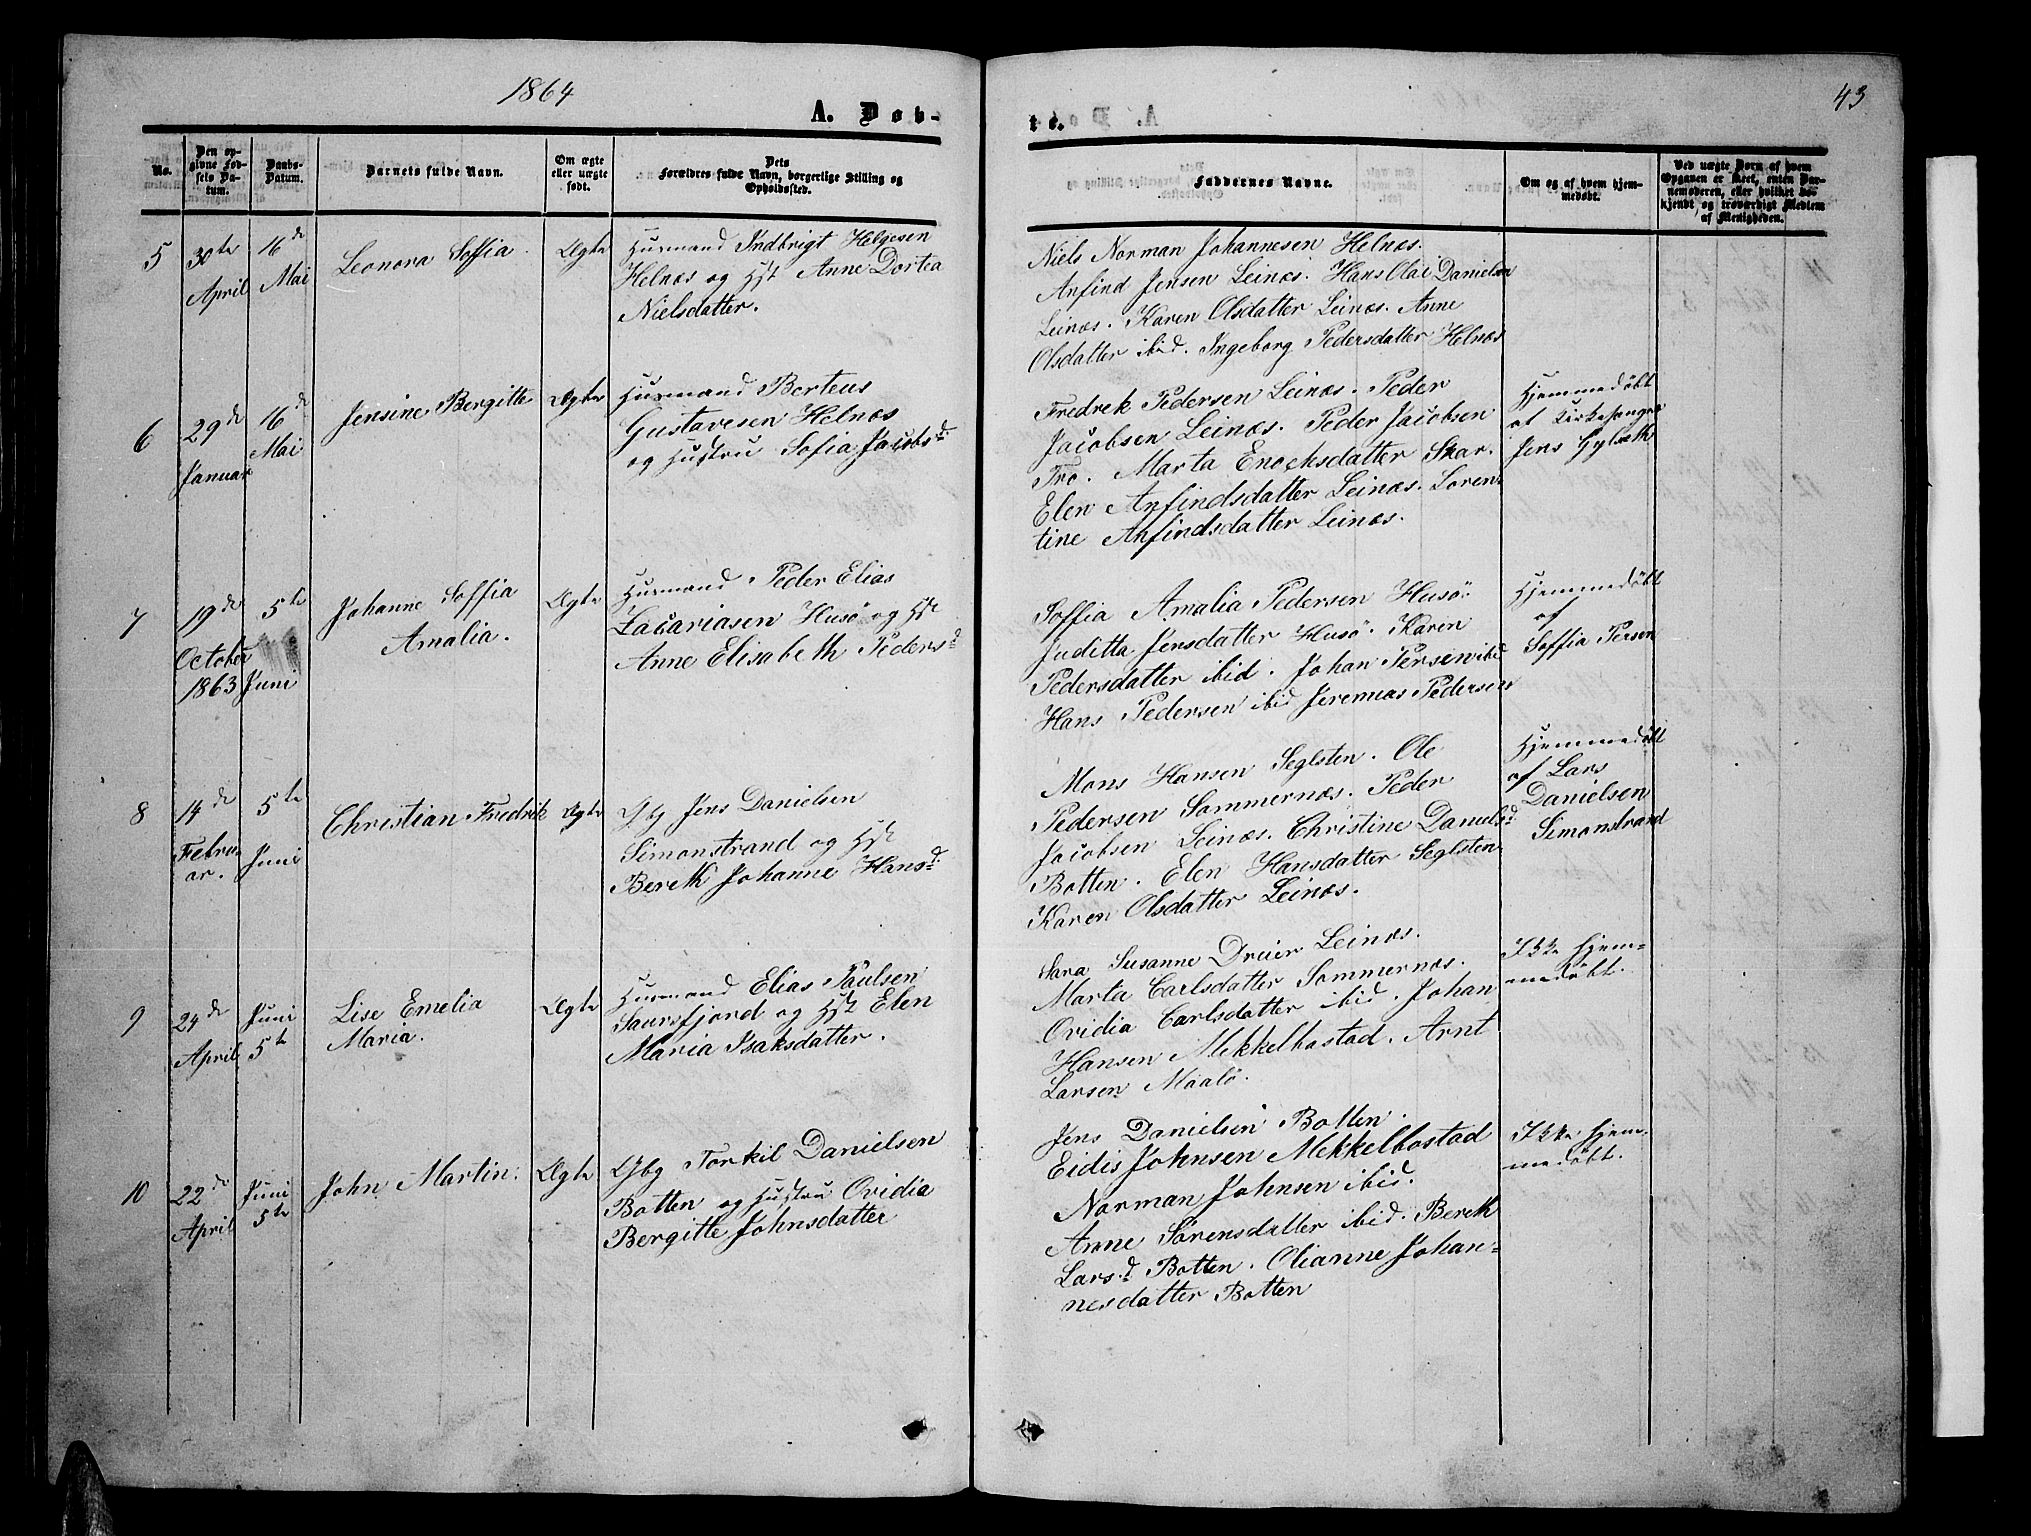 1864
43
A. Døb-
te.
No.
Den op-
givne Fød-
sels Da-
tum.
Daabs-
Datum.
Barnets fulde Navn.
Om ægte
eller uægte
født.
Dets
Forældres fulde Navn, borgerlige Stilling og
Opholdssted.
Faddernes Navne.
Om og af hvem hjem-
medøbt.
Ved uægte Børn af hvem
Opgaven er skeet, enten Bar-
nemoderen, eller hvilket be-
kjendt og troværdigt Medlem
af Menigheden.
5
30te
April
16de
Mai
Leonora Soffia.
Ægte
Huusmand Indbrigt Helgesen
Helnæs og Hst Anne Dortea
Nielsdatter.
Niels Norman Johannesen Helnæs.
Anfind Jensen Leinæs. Hans Olai Danielsen
Leinæs. Karen Olsdatter Leinæs. Anne
Olsdatter ibid. Ingeborg Pedersdatter Helnæs
6
29de
Januar
16de
Mai
Jensine Bergitte
Ægte
Huusmand Berteus
Gustavesen Helnæs
og Hustru Sofia Jacobsd.
Fredrek Pedersen Leinæs. Peder
Jacobsen Leinæs. Peder Jacobsen
Fro. Marta Enochsdatter Skar.
Elen Anfindsdatter Leinæs. Loren
tine Anfindsdatter Leinæs.
Hjemmedöbt
af Kirkesanger
Jens Gylseth
7
19de
October
1863
5te
Juni
Johanne Soffia
Amalia.
Ægte
Huusmand Peder Elias
Zacariasen Husö og Hst
Anne Elisabeth Pedersd
Soffia Amalia Pedersen Husö.
Juditta Jensdatter Husö. Karen
Pedersdatter ibid. Johan Persen ibid
Hans Pedersen ibid Jeremias Pedersen
Hjemmedöbt
af
Soffia Persen
8
14de
Febru
ar.
5te
Juni
Christian Fredrik
Ægte
Gbg Jens Danielsen
Simonstrand og Hst
Bereth Johanne Hansd.
Mons Hansen Seglsten. Ole
Pedersen Sommernæs. Peder
Jacobsen Leinæs. Christine Danielsd
Botten. Elen Hansdatter Seglsten
Karen Olsdatter Leinæs.
Hjemmedöbt
af Lars
Danielsen
Simonstrand
9
24de
April
Juni
5te
Lise Emelia
Maria.
Ægte
Huusmand Elias Paulsen
Saursfjord og Hst Elen
Maria Isaksdatter.
Sara Susanne Dreier Leinæs.
Marta Carlsdatter Sommernæs.
Ovidia Carlsdatter ibid. Johan
Hansen Mekkelbostad. Arnt
Larsen Maalö.
Ikke hjem-
medöbt.
10
22de
April
Juni
5te
John Martin.
Ægte
Gbg Torkil Danielsen
Botten og Hustru Ovidia
Bergitte Johnsdatter
Jens Danielsen Botten.
Eidis Johnsen Mekkelbostad
Norman Johnsen ibid.
Anne Sörensdatter ibid. Bereth
Larsd. Botten. Olianne Johan-
nesdatter Botten
Ikke hjem-
medöbt.